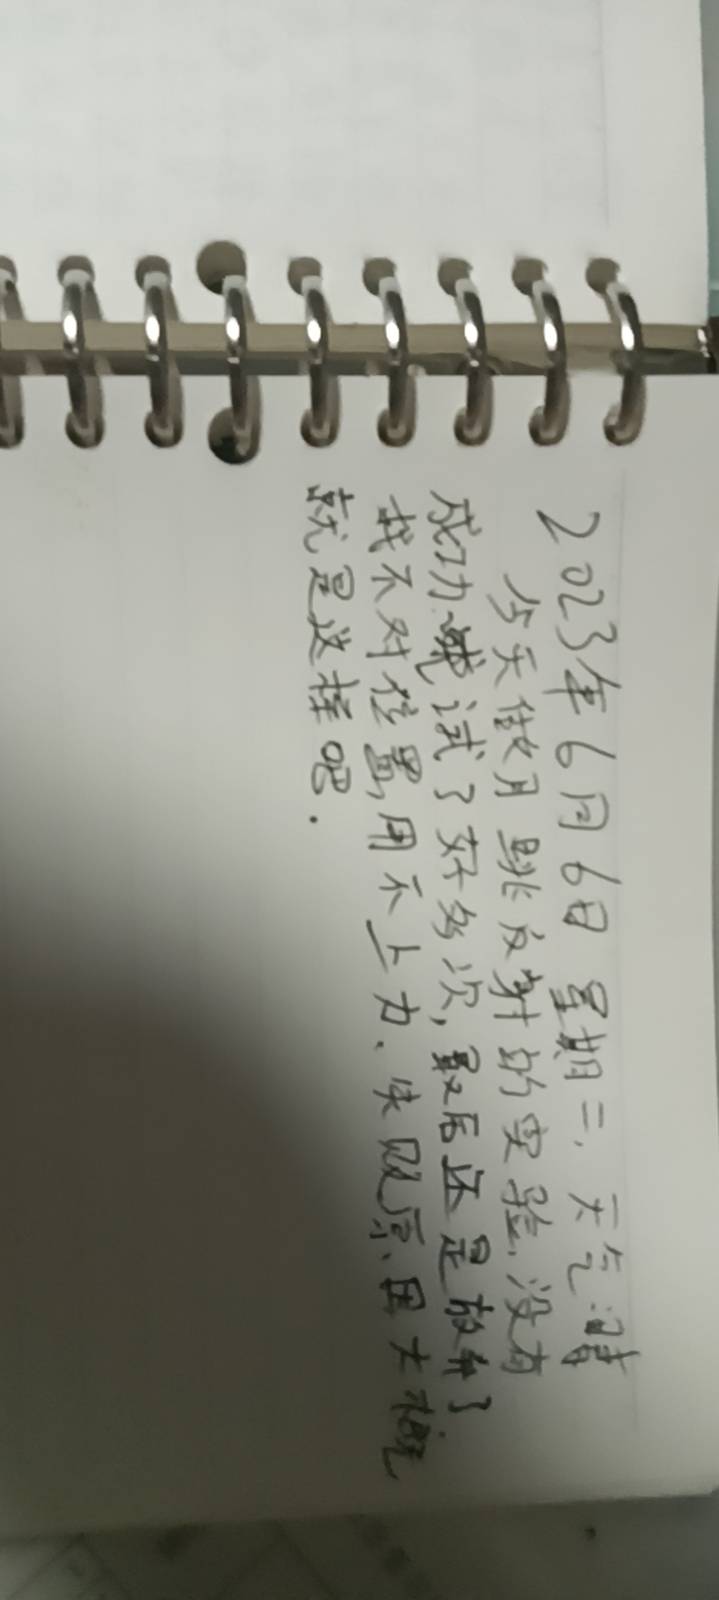 2023年6月6日 星期二,天气晴
今天做月跳反射的实验,没有
成功.试了好多次,最后还是放弃了
找不对位置,用不上力、失败原因大概
就是这样吧.